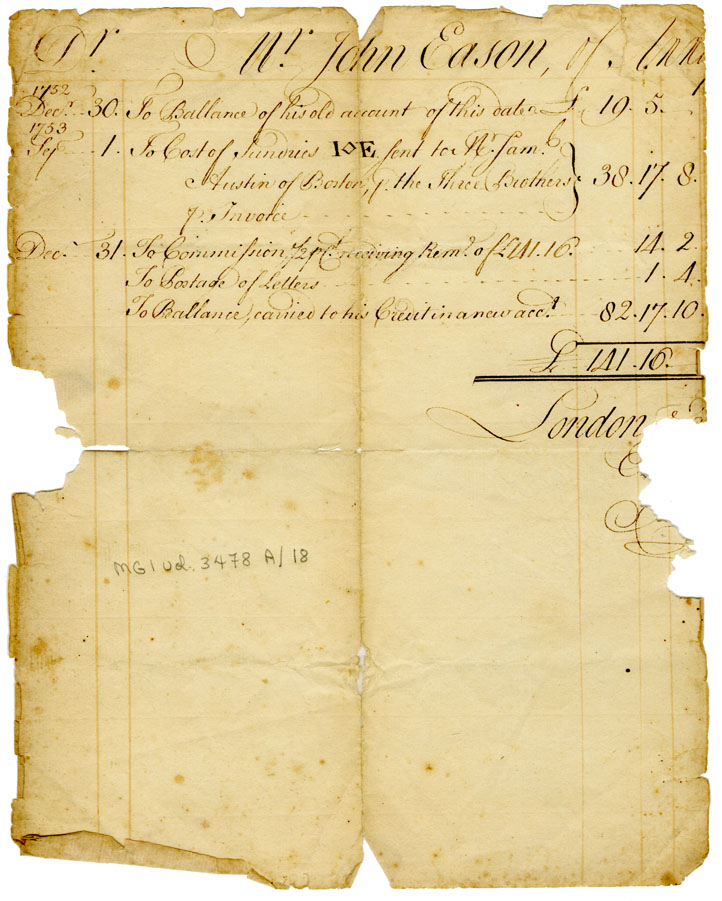 Dr. Mr. John Eason, of Anna
1752
Decr. 30. To Ballance of his old account of this date £ 19. 5.
1753
1. To Cost of Sundries I◇E sent to Mr. Saml.
Austin of Boston, p. the Three Brothers 38. 17. 8.
p. Invoice
Decr. 31. To Commission, ½ p Ct. receiving Remce. of £141. 16. 14. 2
To Postage of Letters 1. 4.
To Ballance, carried to his Credit in a new acct. 82. 17. 10.
£ 141. 16.
London
MG1 Vol. 3478 A/18